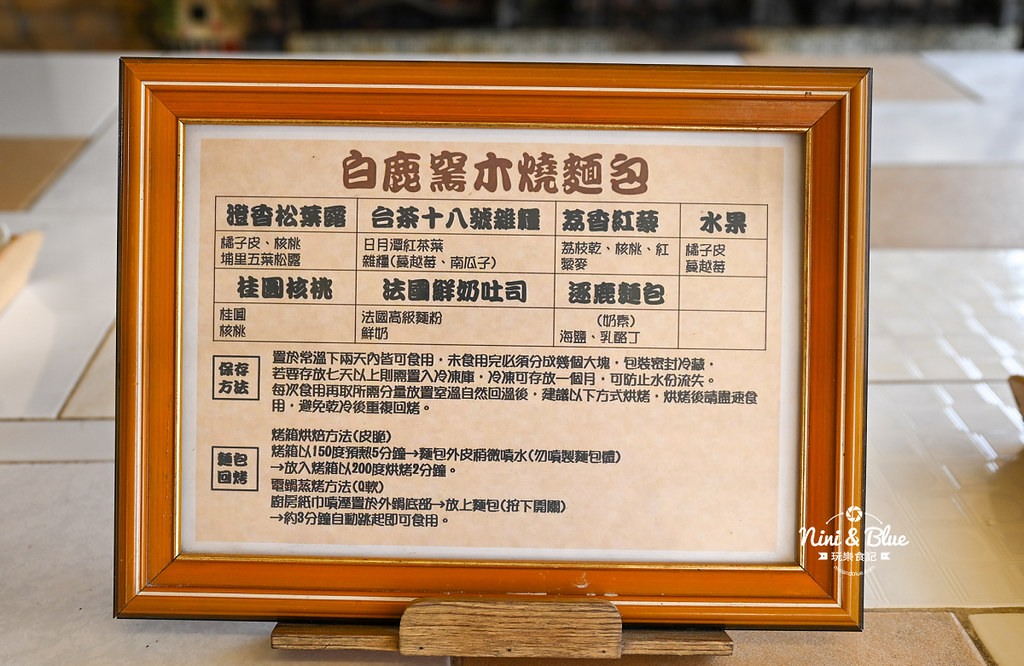 白鹿窯木燒麵包
澄香松葉露 台茶十八號雜糧 荔香紅藜 水果
橘子皮、核桃 日月潭紅茶葉 荔枝乾、核桃、紅 橘子皮
埔里五葉松露 雜糧(蔓越莓、南瓜子) 藜麥 蔓越莓
桂圓核桃 法國鮮奶吐司 逐鹿麵包
桂圓 法國高級麵粉 (奶素)
核桃 鮮奶 海鹽、乳酪丁
保存
方法
置於常溫下兩天內皆可食用，未食用完必須分成幾個大塊，包裝密封冷藏，
若要存放七天以上則需置入冷凍庫，冷凍可存放一個月，可防止水份流失。
每次食用再取所需分量放置室溫自然回溫後，建議以下方式烘烤，烘烤後請盡速食
用，避免乾冷後重複回烤。
麵包
回烤
烤箱烘焙方法(皮脆)
烤箱以150度預熱5分鐘→麵包外皮稍微噴水(勿噴製麵包體)
→放入烤箱以200度烘烤2分鐘。
電鍋蒸烤方法(Q軟)
廚房紙巾噴溼置於外鍋底部→放上麵包(按下開關)
→約3分鐘自動跳起即可食用。
Nini & Blue
玩樂食記